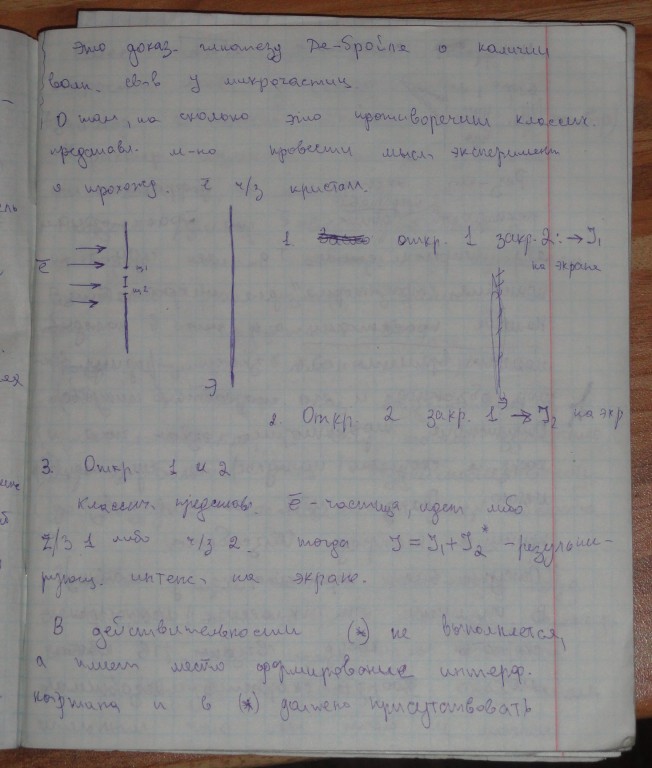 Это доказ. гипотезу Де-Бройля о наличии
волн. св-в у микрочастиц
О том, на сколько это противоречит классич.
представл. м-но провести мысл. эксперимент
я прохожд. ē ч/з кристалл.
1. откр. 1 закр. 2: → J₁
на экране
ē
щ1
щ2
Э
Э
2. Откр. 2 закр. 1 → J₂ на экр
3. Откр. 1 и 2
Классич. представ. ē - частица, идет либо
ч/з 1 либо ч/з 2. тогда J = J₁ + J₂* - результи-
рующ. интенс. на экране.
В действительности (*) не выполняется,
а имеет место формирование интерф.
картина и в (*) должено присутствовать